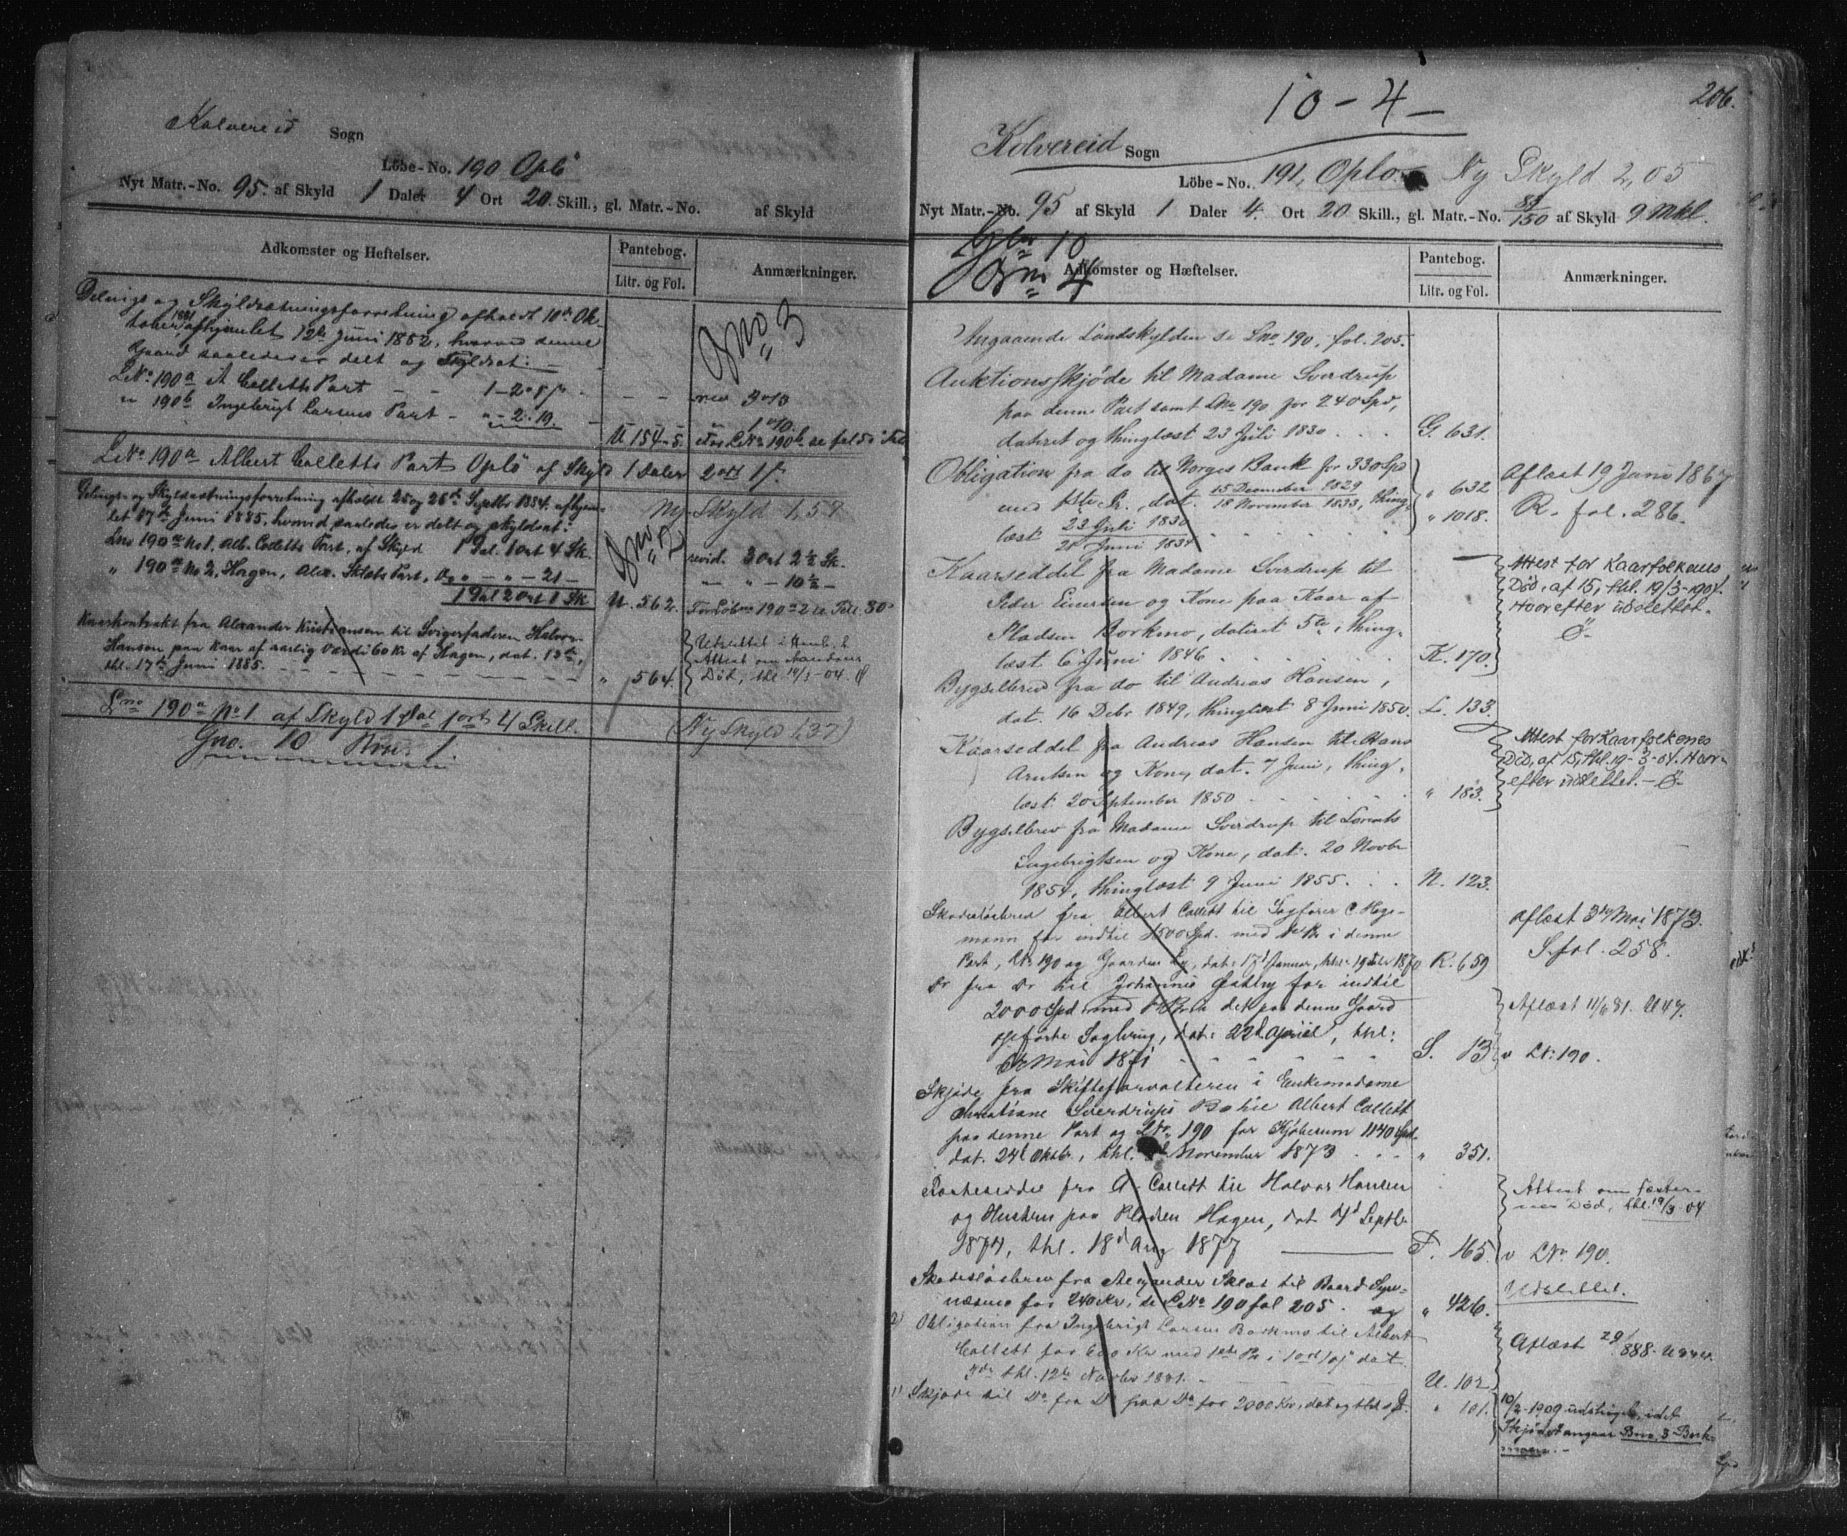 Kolvereid Sogn
Löbe-No. 190 Oplö
Nyt Matr.-No. 95. af Skyld 1 Daler 4 Ort 20 Skill., gl. Matr.-No. af Skyld
Adkomster og Heftelser.
Pantebog.
Litr. og Fol.
Anmærkninger.
Delnings og Skyldsætningsforretning afholdt 10de Ok-
tober 1881, afhjemlet 12te Juni 1882, hvorved denne
Gaard saaledes er delt og Skyldsat:
LNo 190a A Colletts Part - - 1-2-
" 190b Ingebrigt Larsens Part - " - 2. 19. -
U 154-5.
Gno " 3
LNo 190a Albert Colletts Part Oplö af Skyld 1 Daler 2 ort 1 s.
Delings- og Skyldsætningsforretning afholdt 25 og 26de Septbr 1884, afhjem-
let 17de Juni 1885, hvorved saaledes er delt og skyldsat:
Lno 190a No 1, Alb. Colletts Part, af Skyld 1 Dal. 1 ort 4 Sk.
" 190a No 2, Hagen, Alex. Part, " - " - 21 -
1 Dal 2 ort 1 Sk
U. 562.
Ny Skyld 1,59.
Gno " 2
revid. 3 ort 2 ½ Sk.
- " - 10 ½ -
Kaarkontrakt fra Alexander Kristiansen til Svigerfaderen Halvor
Hansen paa Kaar af aarlig Værdi 60 Kr af Hagen, dat. 13de,
thl. 17de Juni 1885. - - -
" 564.
Attest om
Død, thl 19/3-04.
Lno 190a No 1 af Skyld 1 Dal 1 ort 4 Skill. (Ny Skyld 1,37)
Gno. 10 Bno. 1
206.
10 - 4 -
Kolvereid Sogn
Löbe-No. 191, Oplo Ny Skyld 2,05
Nyt Matr.-No. 95 af Skyld 1 Daler 4 Ort 20 Skill., gl. Matr.-No. 89/150 af Skyld 9 Mkl.
Gno 10
Bno 4
Adkomster og Hæftelser.
Pantebog.
Litr. og Fol.
Anmærkninger.
Angaaende Landskylden se Lno 190, fol. 205.
Auktionsskjøde til Madame Sverdrup
paa denne Part samt Lno 190 for 240 Spd,
dateret og thinglæst 23 Juli 1830 . . . G. 631.
Obligation fra do til Norges Bank for 330 Spd
med 1ste Pr., dat. 15 December 1829 / 18 November 1833, thing-
læst 23 Juli 1830 / 21 Juni 1834
" 632
" 1018.
Aflæst 19 Juni 1867
R. fol. 286.
Kaarseddel fra Madame Sverdrup til
Peder Einersen og Kone paa Kaar af
Pladsen Borkmo, dateret 5te, thing-
læst 6 Juni 1846 . . . K. 170.
Attest for Kaarfolkenes
Død, af 15, thl. 19/3-1904.
Hvorefter udslettet.
Bygselbrev fra do til Andreas Hansen,
dat. 16 Debr 1849, thinglæst 8 Juni 1850. L. 133.
Kaarseddel fra Andreas Hansen til Hans
Arntsen og Kone, dat. 7 Juni, thing-
læst 20 September 1850 . . . " 183.
Attest for Kaarfolkenes
Død, af 15, thl. 19-3-04. Hvor-
efter udslettet.
Bygselbrev fra Madame Sverdrup til Lorents
Ingebrigtsen og Kone, dat. 20 Novbr
1854, thinglæst 9 Juni 1855. . . N. 123.
Skadesløsbrev fra Albert Collett til Sagfører C Hege-
mann for indtil 1500 Spd. med 1ste Pr i denne
Part, LNo 190 og Gaarden , dat. 17d Januar, thl. 19 1870 R. 659
aflæst 3die Mai 1873
S. fol. 258.
Do fra Do til Johannes for indtil
2000 Spd med Pr i det paa denne Gaard
opførte Sagbrug, dat: 22d April, thl:
Mai 1871 S. 13
Aflæst 11/6 81. U 47.
v LNo 190.
Skjøde fra Skifteforvalteren i Enkemadame
Christiane Sverdrups Bo til Albert Collett
paa denne Part og LNo 190 for Kjøbesum 1140 Spd.
dat. 24d Oktbr, thl. November 1873 . . . " 351.
fra A. Collett til Halvor Hansen
og Hustru paa Pladsen Hagen, dat 4d Septbr
1874, thl. 18d Aug 1877 T. 165
Attest om
Død, thl. 19/3-04
v LNo 190.
Skadesløsbrev fra Alexander til Baard
for 240 Kr, se LNo 190 fol 205. og " 426.
Udslettet.
2) Obligation fra Ingebrigt Larsen Borkmo til Albert
Collett for 600 Kr med 1ste Pr i 1 ort 10 s dat
thl. 12te Novbr 1881. U. 102
Aflæst
1) Skjøde til Do fra Do paa Do for 2000 Kr, dat og thl s. D. " 101.
10/2-1909 udstrøget, idet
Skjødet angaar Bno. 3 Bork-
moen. -